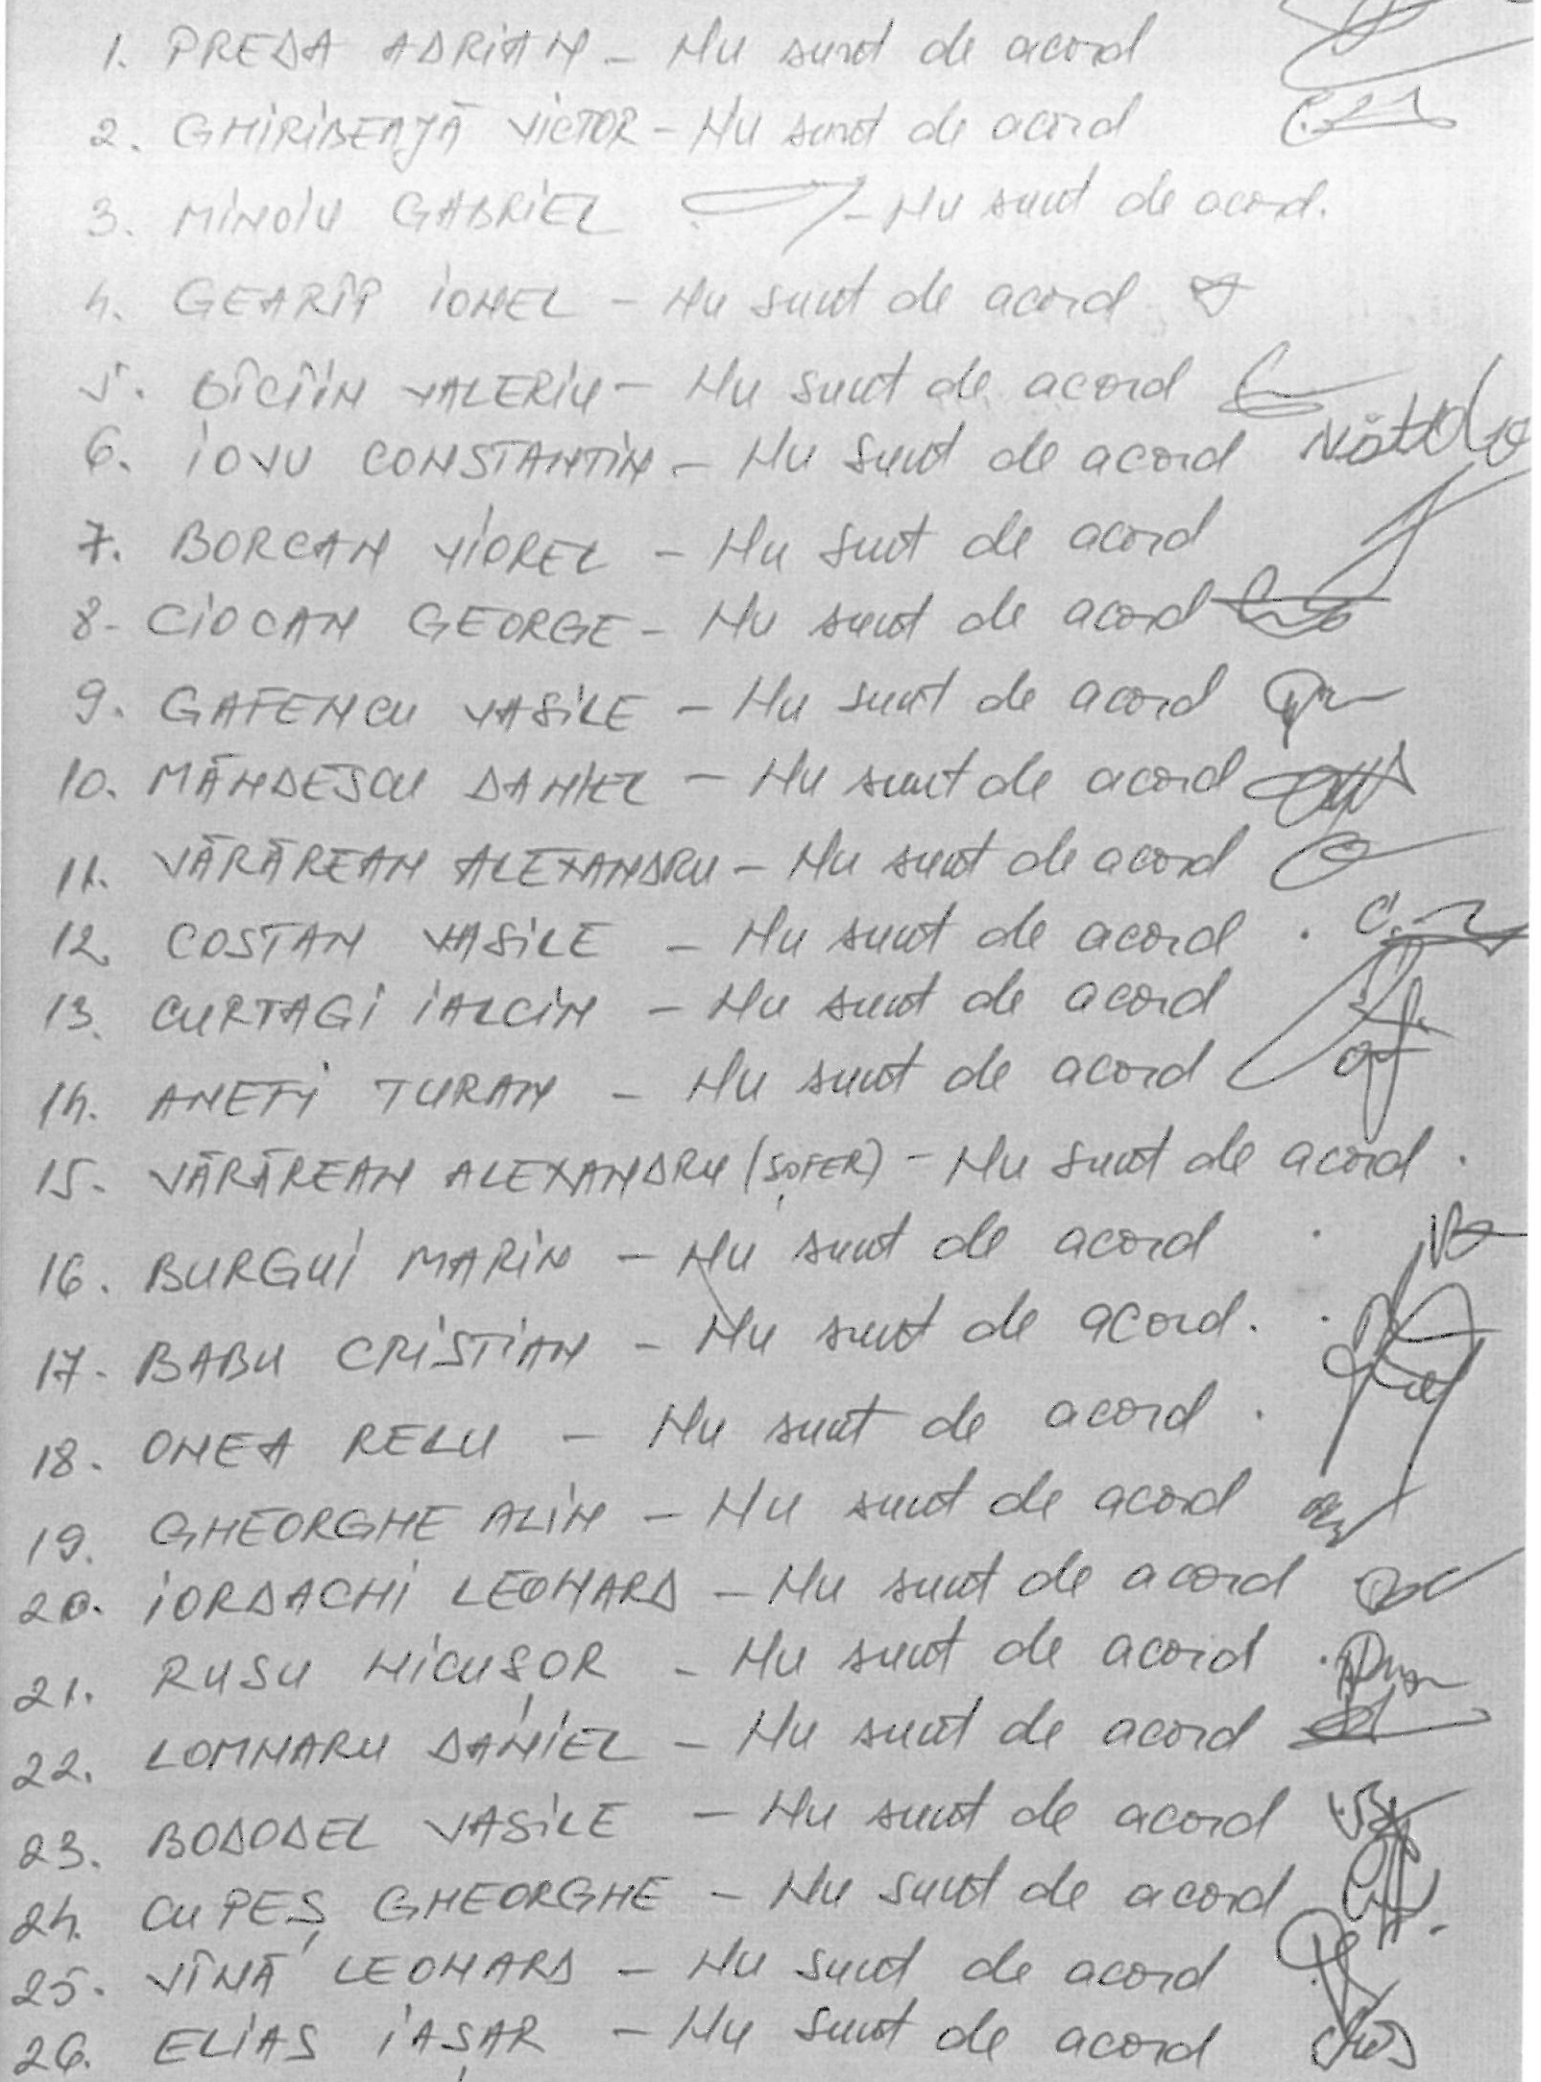 1. PREDA ADRIAN - Nu sunt de acord
2. GHIRIBEAJĂ VICTOR - Nu sunt de acord
3. MINOIU GABRIEL - Nu sunt de acord.
4. GEARÎP IONEL - Nu sunt de acord
5. VALERIU - Nu sunt de acord
6. IOVU CONSTANTIN - Nu sunt de acord
7. BORCAN VIOREL - Nu sunt de acord
8. CIOCAN GEORGE - Nu sunt de acord
9. GAFENCU VASILE - Nu sunt de acord
10. MĂNDESCU DANIEL - Nu sunt de acord
11. VĂRĂREAN ALEXANDRU - Nu sunt de acord
12. COSTAN VASILE - Nu sunt de acord
13. CURTAGI IALCIN - Nu sunt de acord
14. TURAN - Nu sunt de acord
15. VĂRĂREAN ALEXANDRU (ȘOFER) - Nu sunt de acord.
16. BURGUI MARIN - Nu sunt de acord
17. BABU CRISTIAN - Nu sunt de acord.
18. ONEA RELU - Nu sunt de acord.
19. GHEORGHE ALIN - Nu sunt de acord
20. IORDACHI LEONARD - Nu sunt de acord
21. RUSU NICUȘOR - Nu sunt de acord
22. LOMNARU DANIEL - Nu sunt de acord
23. BODODEL VASILE - Nu sunt de acord
24. CUPEȘ GHEORGHE - Nu sunt de acord
25. VÎNĂ LEONARD - Nu sunt de acord
26. ELIAS IAȘAR - Nu sunt de acord